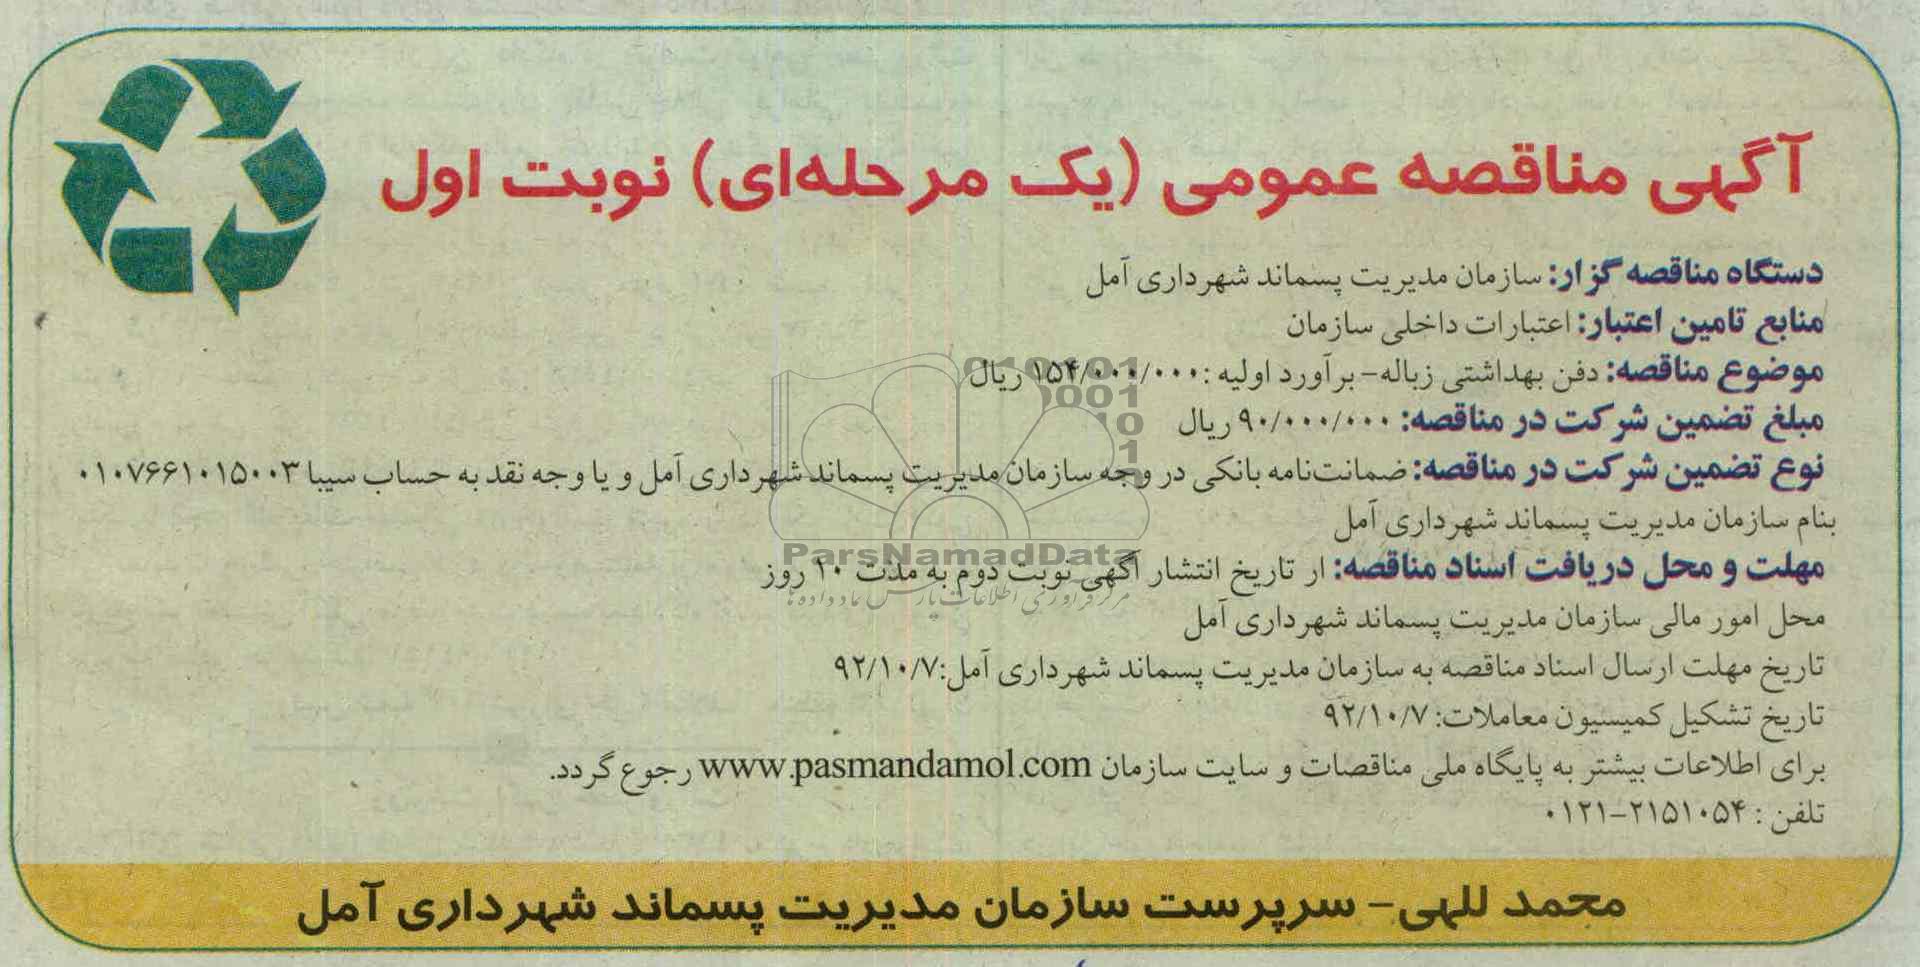 آگهی مناقصه عمومی (یک مرحله‌ای) نوبت اول
دستگاه مناقصه گزار: سازمان مدیریت پسماند شهرداری آمل
منابع تامین اعتبار: اعتبارات داخلی سازمان
موضوع مناقصه: دفن بهداشتی زباله- برآورد اولیه: ۱۵۴/۰۰۰/۰۰۰ ریال
مبلغ تضمین شرکت در مناقصه: ۹۰/۰۰۰/۰۰۰ ریال
نوع تضمین شرکت در مناقصه: ضمانت‌نامه بانکی در وجه سازمان مدیریت پسماند شهرداری آمل و یا وجه نقد به حساب سیبا ۰۱۰۷۶۶۱۰۱۵۰۰۳
بنام سازمان مدیریت پسماند شهرداری آمل
مهلت و محل دریافت اسناد مناقصه: از تاریخ انتشار آگهی نوبت دوم به مدت ۱۰ روز
محل امور مالی سازمان مدیریت پسماند شهرداری آمل
تاریخ مهلت ارسال اسناد مناقصه به سازمان مدیریت پسماند شهرداری آمل: ۹۲/۱۰/۷
تاریخ تشکیل کمیسیون معاملات: ۹۲/۱۰/۷
برای اطلاعات بیشتر به پایگاه ملی مناقصات و سایت سازمان www.pasmandamol.com رجوع گردد.
تلفن: ۲۱۵۱۰۵۴-۰۱۲۱
محمد للهی- سرپرست سازمان مدیریت پسماند شهرداری آمل
010101
0001
10
1
ParsNamadData
مرکز فرآوری اطلاعات پارس نماد داده‌ها